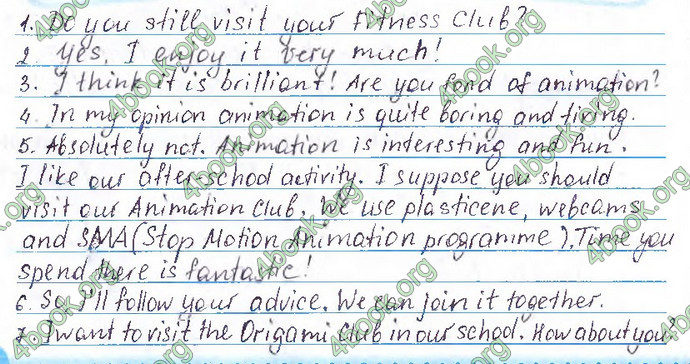 1. Do you still visit your fitness club?
2. Yes, I enjoy it very much!
3. I think it is brilliant! Are you fond of animation?
4. In my opinion animation is quite boring and tiring.
5. Absolutely not. Animation is interesting and fun.
I like our after-school activity. I suppose you should
visit our Animation Club. We use plasticene, webcams
and SMA (Stop Motion Animation programme). Time you
spend there is fantastic!
6. So, I'll follow your advice. We can join it together.
7. I want to visit the Origami Club in our school. How about you?
4book.org